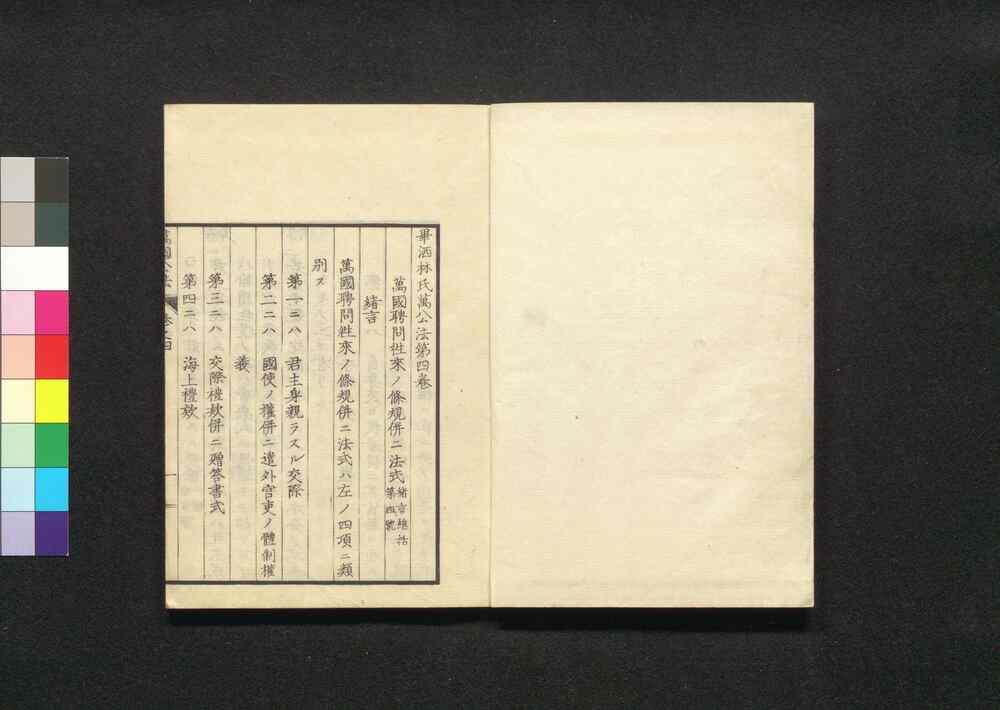 畢洒林氏萬公法第四卷
萬國聘問徃來ノ條規併ニ法式 緒言總括 第四號
緒言
萬國聘問徃來ノ條規併ニ法式ハ左ノ四項ニ類
別ス
第一ニハ 君主身親ラスル交際
第二ニハ 國使ノ權併ニ遣外官吏ノ體制權
義
第三ニハ 交際禮欵併ニ贈答書式
第四ニハ 海上禮欵
萬國公法 卷之四
一